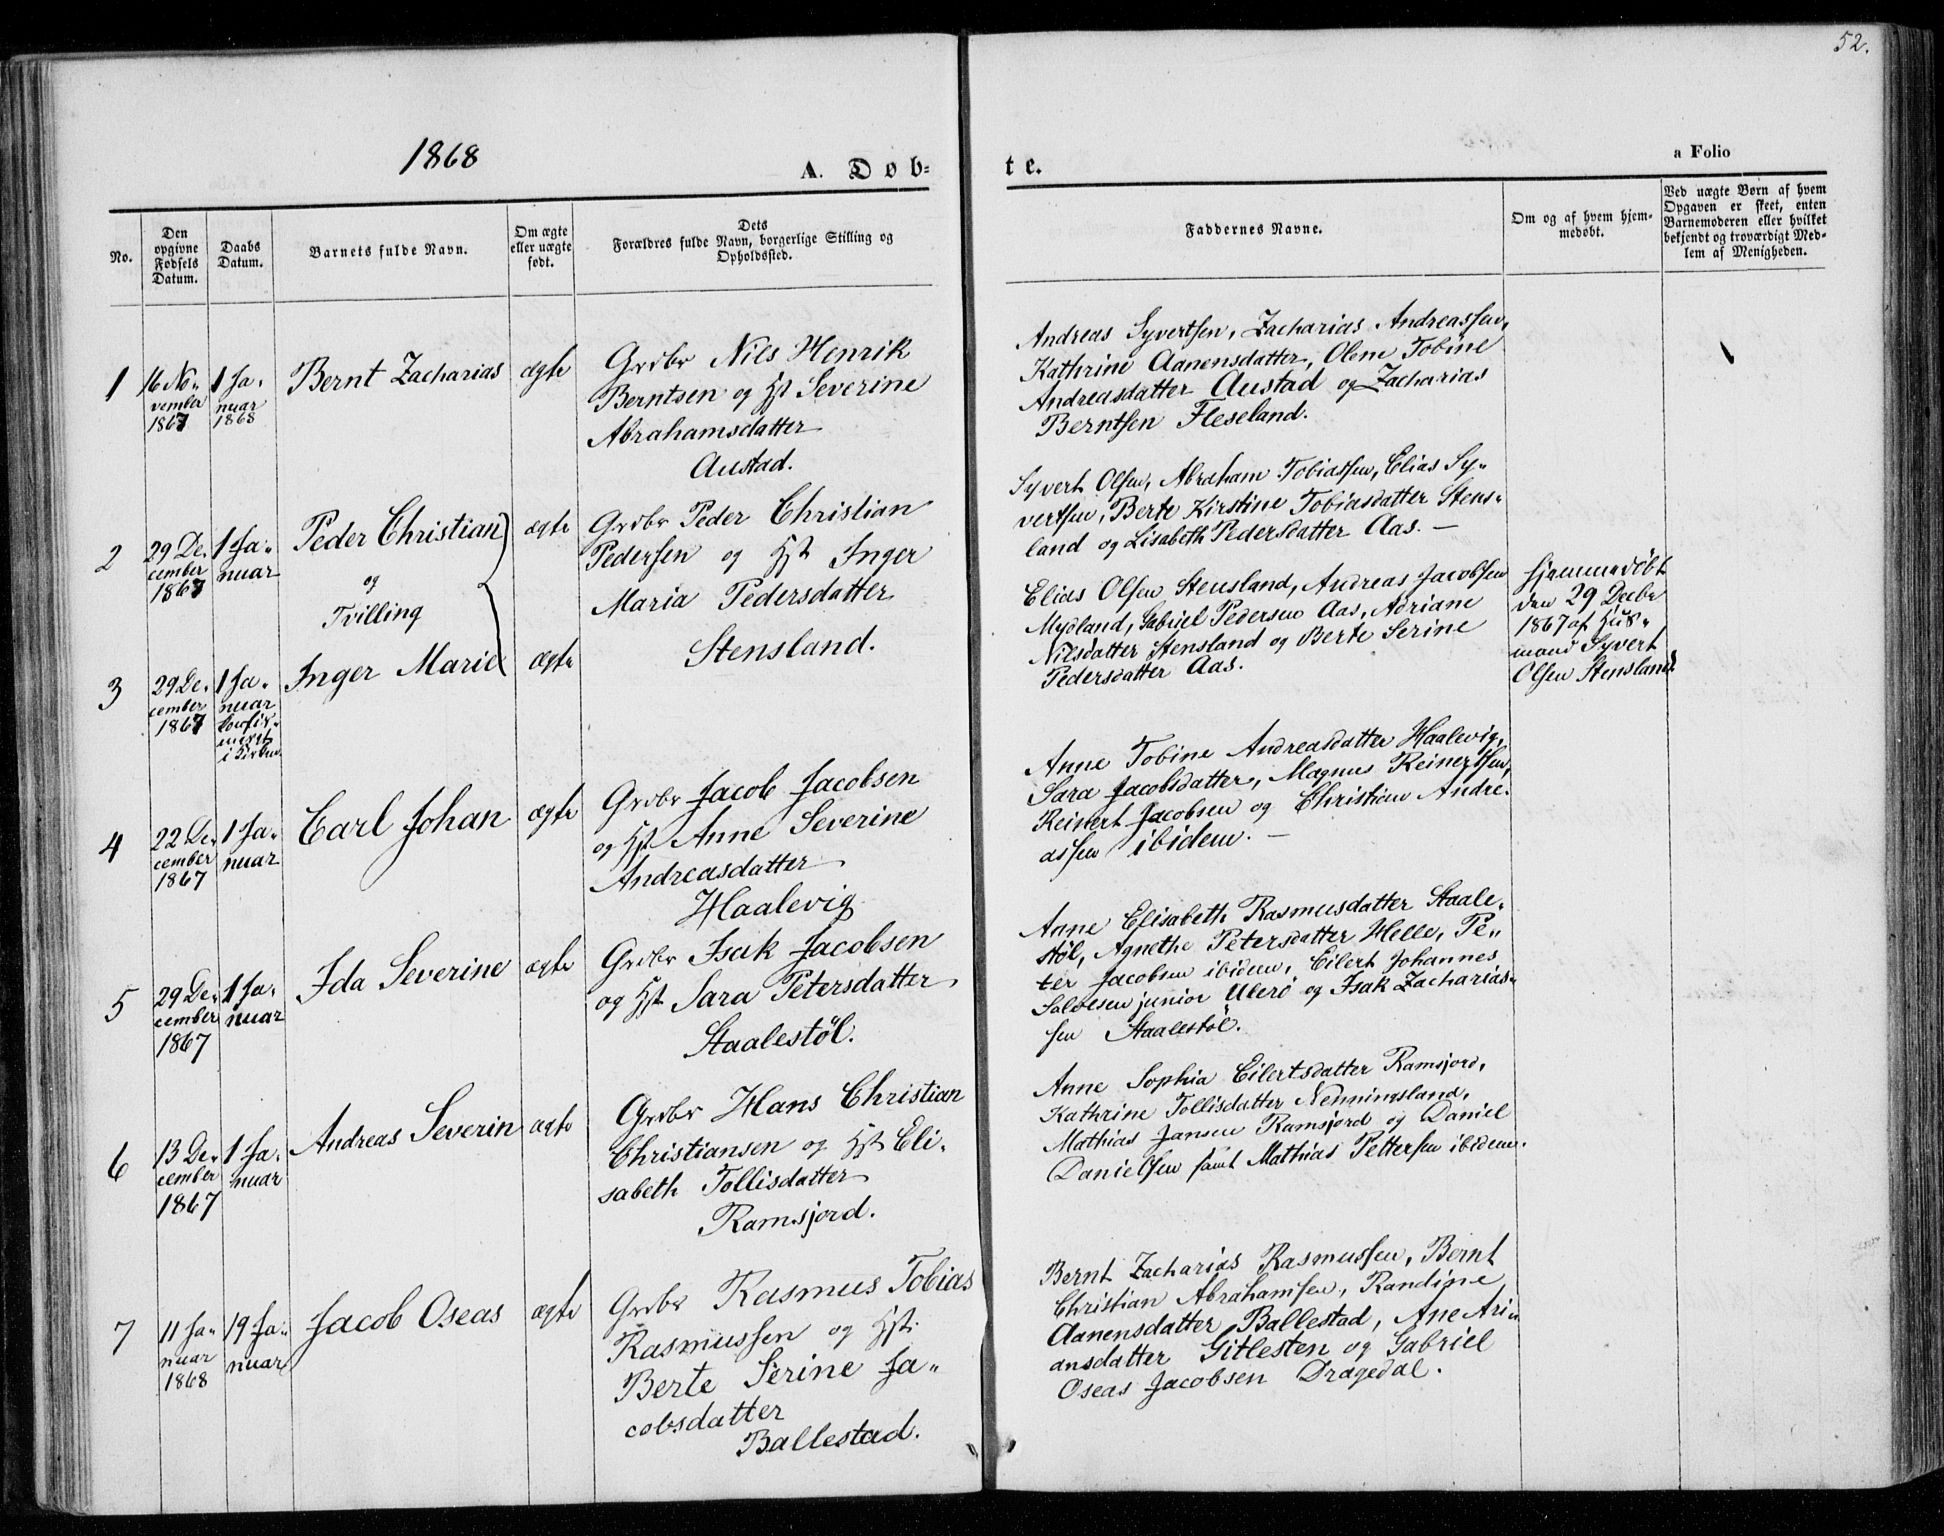 52.
1868
A. Døb-
te.
a Folio
No.
Den
opgivne
Fødsels
Datum.
Daabs
Datum.
Barnets fulde Navn.
Om ægte
eller uægte
født.
Dets
Forældres fulde Navn, borgerlige Stilling og
Opholdssted.
Faddernes Navne.
Om og af hvem hjem-
medøbt.
Ved uægte Børn af hvem
Opgaven er skeet, enten
Barnemoderen eller hvilket
bekjendt og troværdigt Med-
lem af Menigheden.
1
16 No-
vember
1867
1 Ja-
nuar
1868
Bernt Zacharias
ægte
Grdbr Nils Henrik
Berntsen og Hst Severine
Abrahamsdatter
Austad.
Andreas Syvertsen, Zacharias Andreassen,
Kathrine Aanensdatter, Olene Tobine
Andreasdatter Austad og Zacharias
Berntsen Fleseland.
2
29 De-
cember
1867
1 Ja-
nuar
Peder Christian
og
Tvilling
ægte
Grdbr Peder Christian
Pedersen og Hst Inger
Maria Pedersdatter
Stensland.
Syvert Olsen, Abraham Tobiassen, Elias Sy-
vertsen, Berte Kirstine Tobiasdatter Stens-
land og Lisabeth Pedersdatter Aas. —
3
29 De-
cember
1867
1 Ja-
nuar
i Kirken
Inger Marie
ægte
Elias Olsen Stensland, Andreas Jacobsen
Mydland, Gabriel Pedersen Aas, Adriane
Nilsdatter Stensland og Berte Serine
Pedersdatter Aas.
Hjemmedøbt
den 29 Decbr
1867 af Hus-
mand Syvert
Olsen Stensland.
4
22 De-
cember
1867
1 Ja-
nuar
Carl Johan
ægte
Grdbr Jacob Jacobsen
og Hst Anne Severine
Andreasdatter
Haalevig
Anne Tobine Andreasdatter Haalevig,
Sara Jacobsdatter, Magnus Reinertsen,
Reinert Jacobsen og Christian Andre-
assen ibidem. —
5
29 De-
cember
1867
1 Ja-
nuar
Ida Severine
ægte
Grdbr Isak Jacobsen
og Hst Sara Petersdatter
Staalestøl.
Anne Elisabeth Rasmusdatter Staale-
støl, Agnethe Petersdatter Helle, Pe-
ter Jacobsen ibidem, Eilert Johannes
Salvesen junior Ulerø og Isak Zacharias-
sen Staalestøl.
6
13 De-
cember
1867
1 Ja-
nuar
Andreas Severin
ægte
Grdbr Hans Christian
Christiansen og Hst Eli-
sabeth Tollisdatter
Ramsjord.
Anne Sophia Eilertsdatter Ramsjord,
Kathrine Tollisdatter Nenningsland,
Mathias Jansen Ramsjord og Daniel
Danielsen samt Mathias Pettersen ibidem.
7
11 Ja-
nuar
1868
19 Ja-
nuar
Jacob Oseas
ægte
Grdbr Rasmus Tobias
Rasmussen og Hst
Berte Serine Ja-
cobsdatter
Ballestad.
Bernt Zacharias Rasmussen, Bernt
Christian Abrahamsen, Randine
Aanensdatter Ballestad, Ane Ari-
ansdatter Gitlesten og Gabriel
Oseas Jacobsen Dragedal.